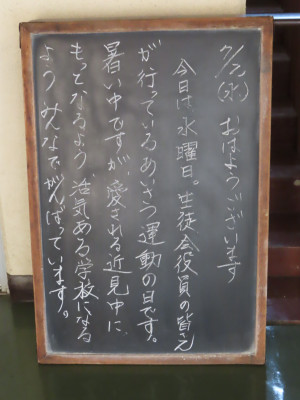 7/2(水) おはようございます
今日は水曜日。生徒会役員の皆さん
が行っているあいさつ運動の日です。
暑い中ですが、愛される近見中に、
もっとなるよう、活気ある学校になる
よう みんなでがんばっています。